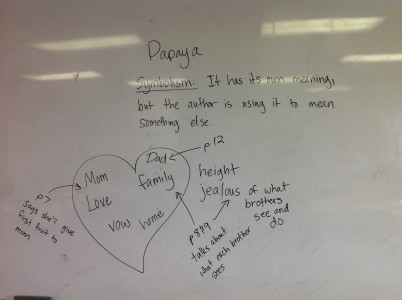 Papaya
Symbolism: It has its own meaning,
but the author is using it to mean
something else.
Dad
p12
Mom
family
Love
vow home
p7
says she'll give
first fruit to
mom
height
jealous of what
brothers
see and
do
p8+9
talks about
what each brother
sees